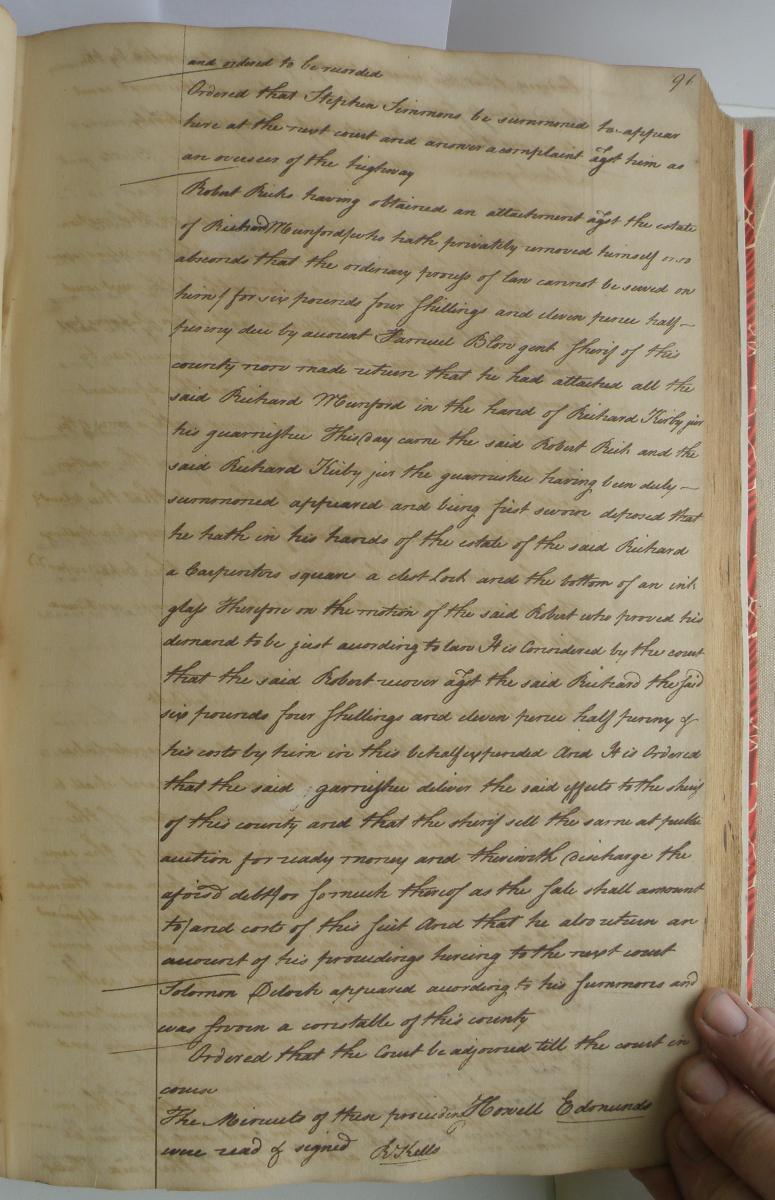 91
and ordered to be recorded
Ordered that Stephen Simmons be summoned to appear
here at the next court and answer a complaint agst him as
an overseer of the highway
Robert Ricks having obtained an attachment agst the estate
of Richard Munford/who hath privately removed himself or so
absconds that the ordinary process of law cannot be served on
him/ for six pounds four shillings and eleven pence half-
penny due by account Samuel Blow gent Sherif of this
county now made return that he had attached all the
said Richard Munford in the hand of Richard Kirby jur
his guarnishee This day came the said Robert Rick and the
said Richard Kirby jur the guarnishee having been duly -
summoned appeared and being first sworn deposed that
he hath in his hands of the estate of the said Richard
a Carpenters square a chest Lock and the bottom of an ink
glass Therefore on the motion of the said Robert who proved his
demand to be just according to law It is Considered by the court
that the said Robert recover agst the said Richard the said
six pounds four shillings and eleven pence half penny &
his costs by him in this behalf expended And It is Ordered
that the said garnishee deliver the said effects to the sherif
of this county and that the sherif sell the same at public
auction for ready money and therewith discharge the
aforsd debt/or so much thereof as the sale shall amount
to/and costs of this suit And that he also return an
account of his proceedings hereing to the next court
Solomon Deloch appeared according to his Summons and
was sworn a constable of this county
Ordered that the Court be adjorned till the court in
course
The Minuets of these proceedings Howell Edmunds
were read & signed R Kello